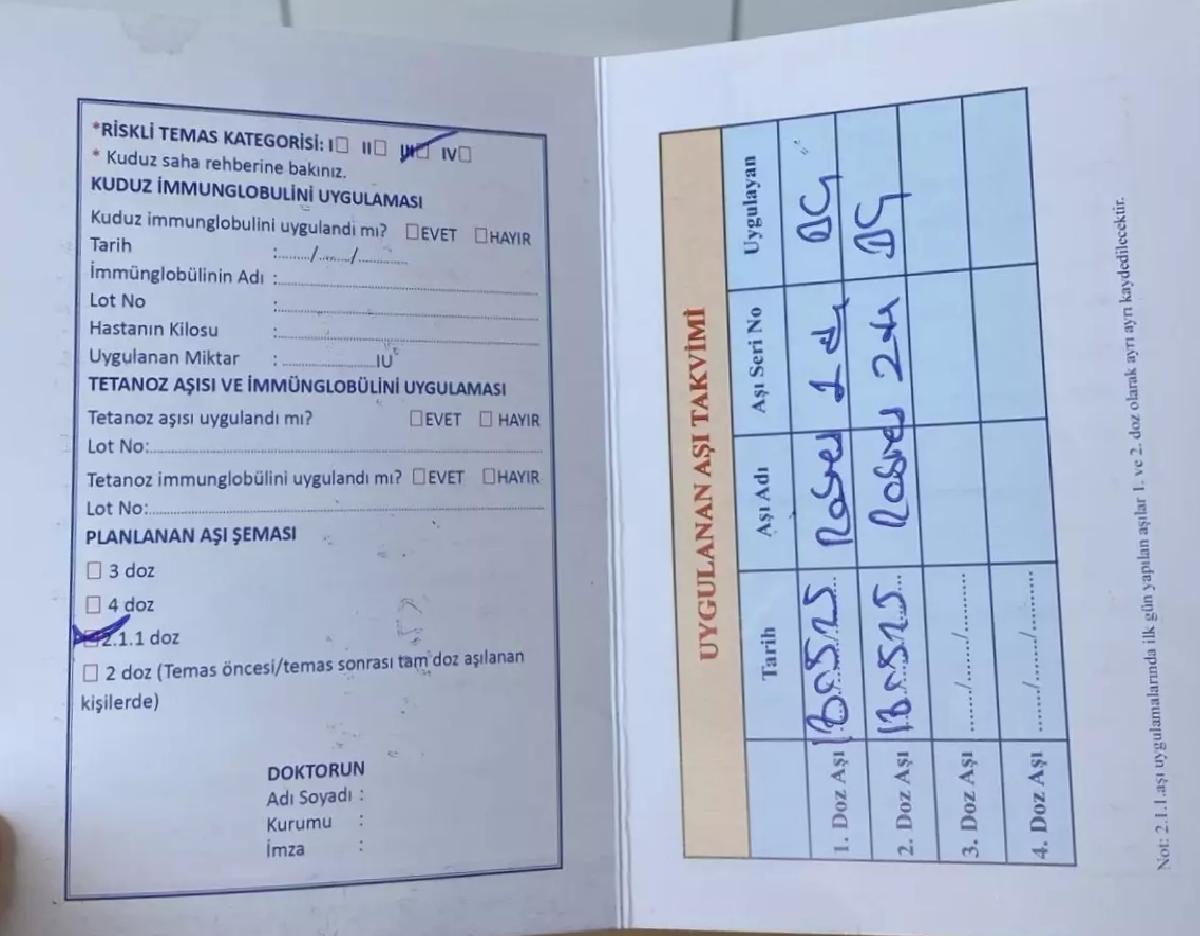 *RİSKLİ TEMAS KATEGORİSİ: I□ II□ III□ IV□
* Kuduz saha rehberine bakınız.
KUDUZ İMMUNGLOBULİNİ UYGULAMASI
Kuduz immunglobulini uygulandi mı? □EVET □HAYIR
Tarih :......../......../............
İmmünglobülinin Adı :
Lot No :
Hastanın Kilosu :
Uygulanan Miktar :....................IU
TETANOZ AŞISI VE İMMÜNGLOBÜLİNİ UYGULAMASI
Tetanoz aşısı uygulandı mı? □EVET □ HAYIR
Lot No:
Tetanoz immunglobülini uygulandı mı? □EVET □HAYIR
Lot No:
PLANLANAN AŞI ŞEMASI
□ 3 doz
□ 4 doz
□ 2.1.1 doz
□ 2 doz (Temas öncesi/temas sonrası tam doz aşılanan
kişilerde)
DOKTORUN
Adı Soyadı :
Kurumu :
İmza :
UYGULANAN AŞI TAKVİMİ
Tarih Aşı Adı Aşı Seri No Uygulayan
1. Doz Aşı
2. Doz Aşı
3. Doz Aşı ......./........./..........
4. Doz Aşı ......./........./..........
Not: 2.1.1.aşı uygulamalarında ilk gün yapılan aşılar 1. ve 2. doz olarak ayrı ayrı kaydedilecektir.